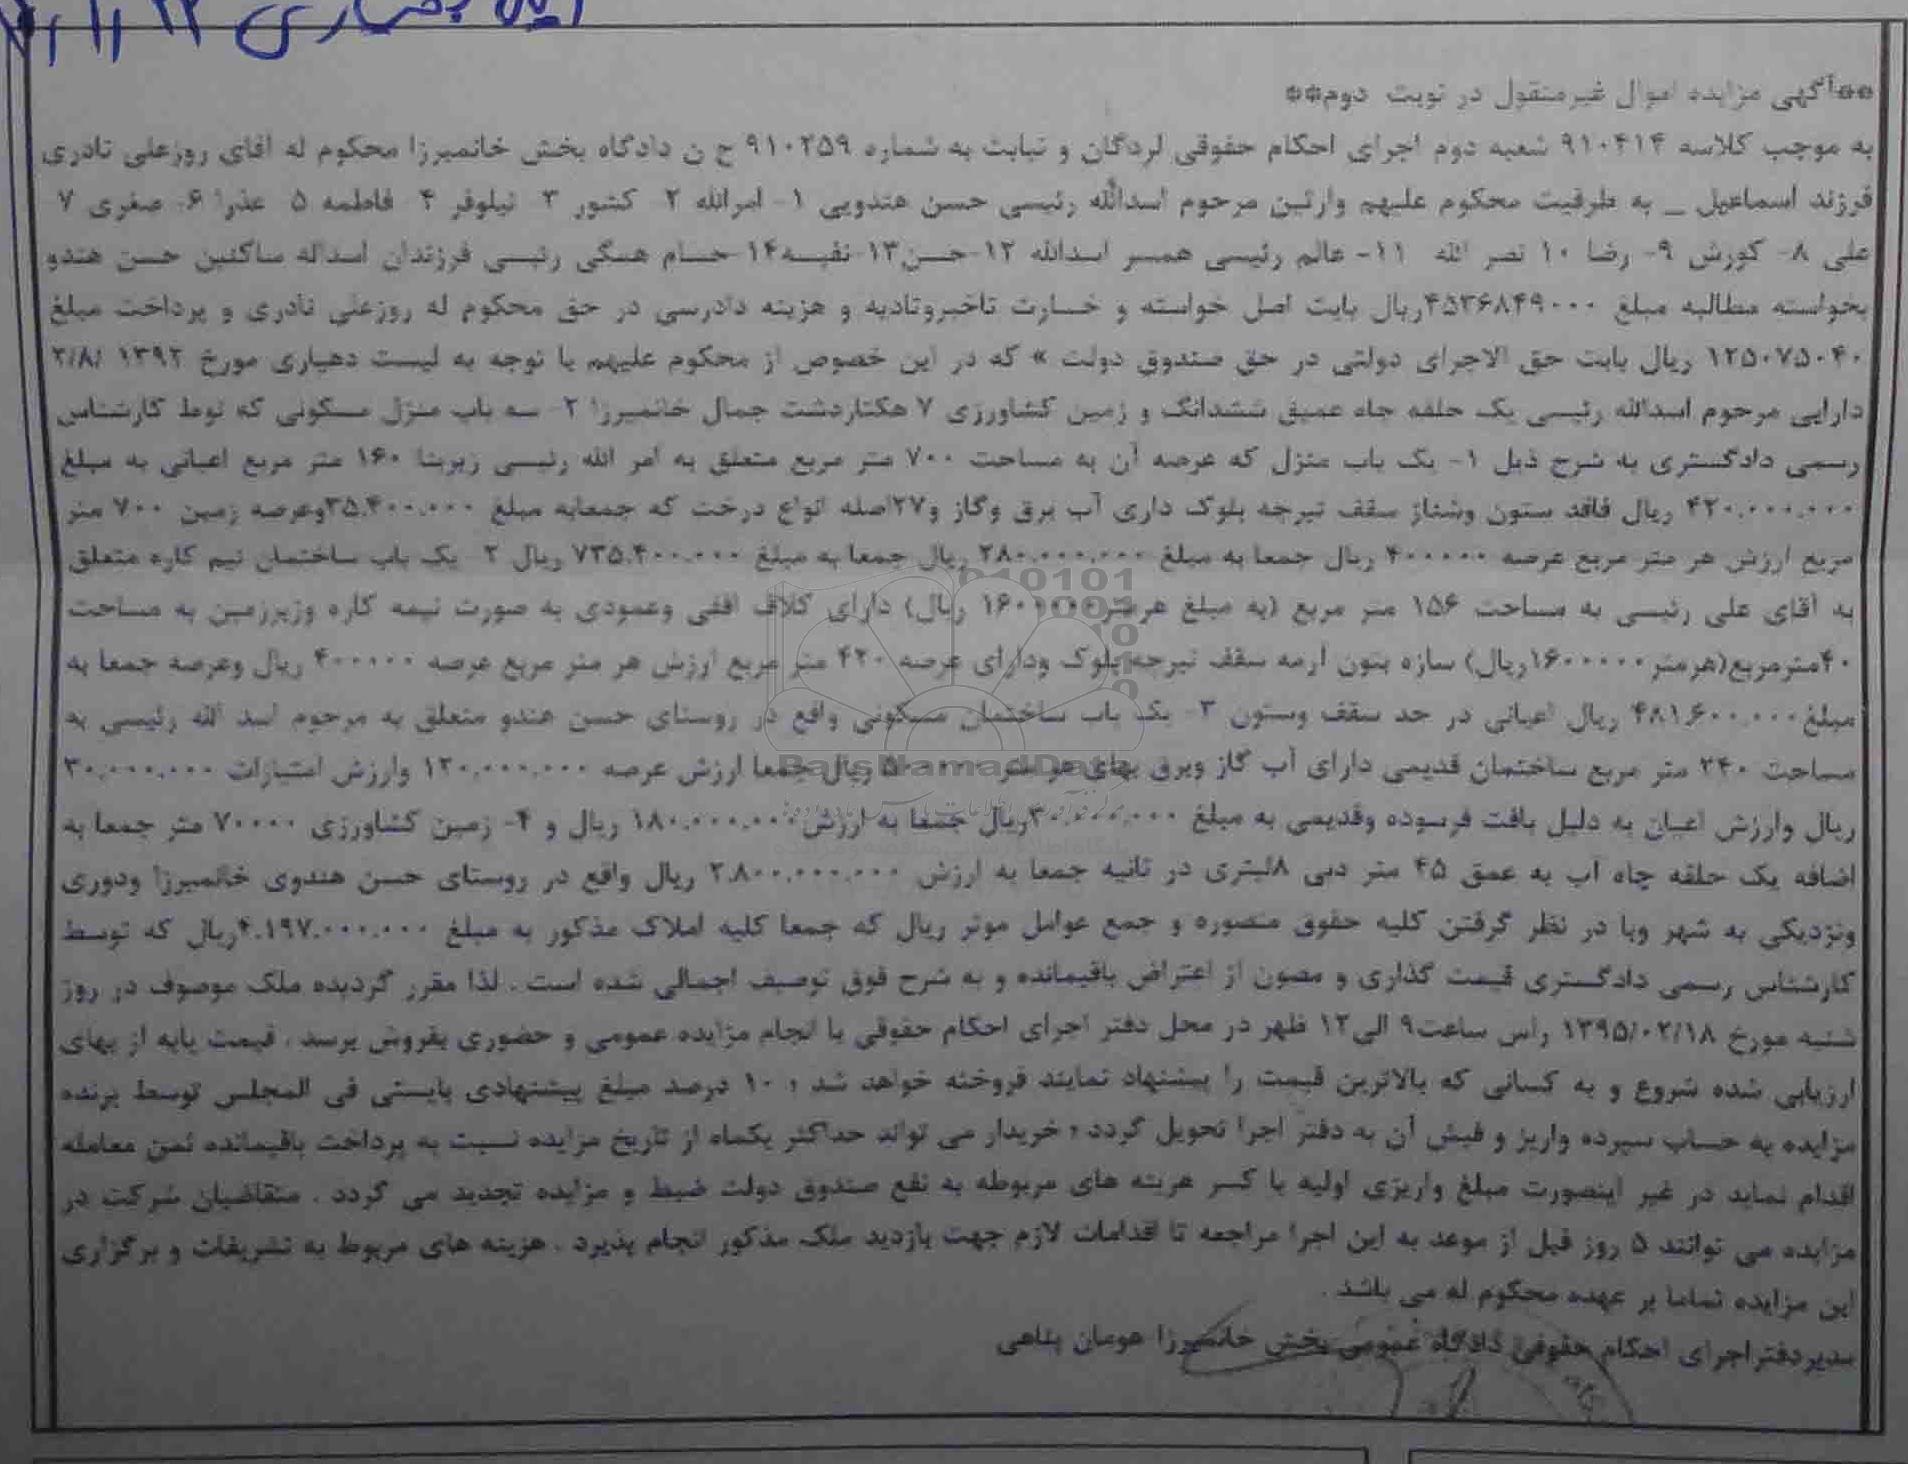 **آگهی مزایده اموال غیرمنقول در نوبت دوم**
به موجب کلاسه ۹۱۰۴۱۴ شعبه دوم اجرای احکام حقوقی لردگان و نیابت به شماره ۹۱۰۲۵۹ ح ن دادگاه بخش خانمیرزا محکوم له اقای روزعلی نادری
فرزند اسماعیل _ به طرفیت محکوم علیهم وارثین مرحوم اسدالله رئیسی حسن هندویی ۱- امرالله ۲- کشور ۳- نیلوفر ۴- فاطمه ۵- عذرا ۶- صغری ۷
علی ۸- کورش ۹- رضا ۱۰ نصر الله ۱۱- عالم رئیسی همسر اسدالله ۱۲-حسن۱۳-نفیسه۱۴-حسام همگی رئیسی فرزندان اسداله ساکنین حسن هندو
بخواسته مطالبه مبلغ ۴۵۳۶۸۴۹۰۰۰ریال بابت اصل خواسته و خسارت تاخیروتادیه و هزینه دادرسی در حق محکوم له روزعلی نادری و پرداخت مبلغ
۱۲۵۰۷۵۰۴۰ ریال بابت حق الاجرای دولتی در حق صندوق دولت » که در این خصوص از محکوم علیهم با توجه به لیست دهیاری مورخ ۱۳۹۲ /۲/۸
دارایی مرحوم اسدالله رئیسی یک حلقه چاه عمیق ششدانگ و زمین کشاورزی ۷ هکتاردشت جمال خانمیرزا ۲- سه باب منزل مسکونی که توط کارشناس
رسمی دادگستری به شرح ذیل ۱- یک باب منزل که عرصه آن به مساحت ۷۰۰ متر مربع متعلق به امر الله رئیسی زیربنا ۱۶۰ متر مربع اعیانی به مبلغ
۴۲۰.۰۰۰.۰۰۰ ریال فاقد ستون وشناژ سقف تیرچه بلوک داری آب برق وگاز و۲۷اصله انواع درخت که جمعابه مبلغ ۳۵.۴۰۰.۰۰۰وعرصه زمین ۷۰۰ متر
مربع ارزش هر متر مربع عرصه ۴۰۰۰۰۰ ریال جمعا به مبلغ ۲۸۰.۰۰۰.۰۰۰ ریال جمعا به مبلغ ۷۳۵.۴۰۰.۰۰۰ ریال ۲- یک باب ساختمان نیم کاره متعلق
به آقای علی رئیسی به مساحت ۱۵۶ متر مربع (به مبلغ هرمتر۱۶۰۰۰۰۰ ریال) دارای کلاف افقی وعمودی به صورت نیمه کاره وزیرزمین به مساحت
۴۰مترمربع(هرمتر۱۶۰۰۰۰۰ریال) سازه بتون ارمه سقف تیرچه بلوک ودارای عرصه ۴۲۰ متر مربع ارزش هر متر مربع عرصه ۴۰۰۰۰۰ ریال وعرصه جمعا به
مبلغ۴۸۱.۶۰۰.۰۰۰ ریال اعیانی در حد سقف وستون ۳- یک باب ساختمان مسکونی واقع در روستای حسن هندو متعلق به مرحوم اسد الله رئیسی به
مساحت ۲۴۰ متر مربع ساختمان قدیمی دارای آب گاز وبرق بهای هر متر ۵۰۰۰۰۰ ریال جمعا ارزش عرصه ۱۲۰.۰۰۰.۰۰۰ وارزش امتیازات ۳۰.۰۰۰.۰۰۰
ریال وارزش اعیان به دلیل بافت فرسوده وقدیمی به مبلغ ۳۰.۰۰۰.۰۰۰ریال جمعا به ارزش۱۸۰.۰۰۰.۰۰۰ ریال و ۴- زمین کشاورزی ۷۰۰۰۰ متر جمعا به
اضافه یک حلقه چاه آب به عمق ۴۵ متر دبی ۸لیتری در ثانیه جمعا به ارزش ۲.۸۰۰.۰۰۰.۰۰۰ ریال واقع در روستای حسن هندوی خانمیرزا ودوری
ونزدیکی به شهر وبا در نظر گرفتن کلیه حقوق متصوره و جمع عوامل موثر ریال که جمعا کلیه املاک مذکور به مبلغ ۴.۱۹۷.۰۰۰.۰۰۰ریال که توسط
کارشناس رسمی دادگستری قیمت گذاری و مصون از اعتراض باقیمانده و به شرح فوق توصیف اجمالی شده است . لذا مقرر گردیده ملک موصوف در روز
شنبه مورخ ۱۳۹۵/۰۲/۱۸ راس ساعت۹ الی۱۲ ظهر در محل دفتر اجرای احکام حقوقی با انجام مزایده عمومی و حضوری بفروش برسد . قیمت پایه از بهای
ارزیابی شده شروع و به کسانی که بالاترین قیمت را پیشنهاد نمایند فروخته خواهد شد ؛ ۱۰ درصد مبلغ پیشنهادی بایستی فی المجلس توسط برنده
مزایده به حساب سپرده واریز و فیش آن به دفتر اجرا تحویل گردد ؛ خریدار می تواند حداکثر یکماه از تاریخ مزایده نسبت به پرداخت باقیمانده ثمن معامله
اقدام نماید در غیر اینصورت مبلغ واریزی اولیه با کسر هزینه های مربوطه به نفع صندوق دولت ضبط و مزایده تجدید می گردد . متقاضیان شرکت در
مزایده می توانند ۵ روز قبل از موعد به این اجرا مراجعه تا اقدامات لازم جهت بازدید ملک مذکور انجام پذیرد . هزینه های مربوط به تشریفات و برگزاری
این مزایده تماما بر عهده محکوم له می باشد .
مدیردفتراجرای احکام حقوقی دادگاه عمومی بخش خانمیرزا هومان پناهی